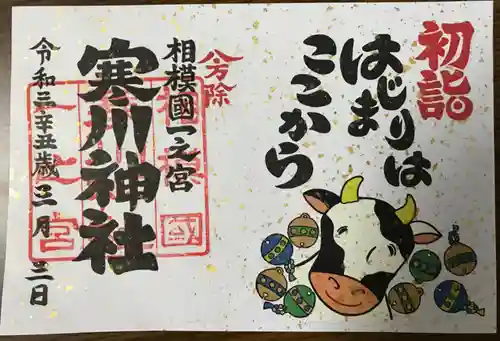 初詣
はじまりは
ここから
八方除
相模國一之宮
寒川神社
令和三辛丑歳三月三日